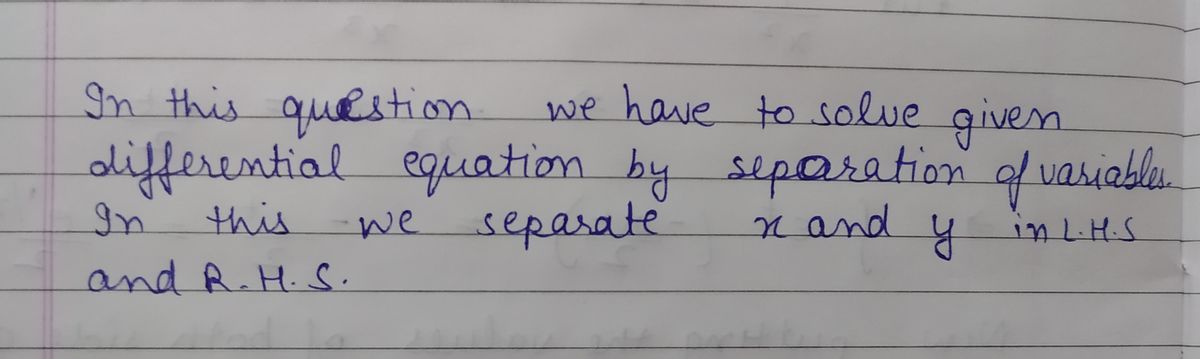 In this question we have to solve given
differential equation by separation of variables.
In this we separate x and y in L.H.S
and R.H.S.